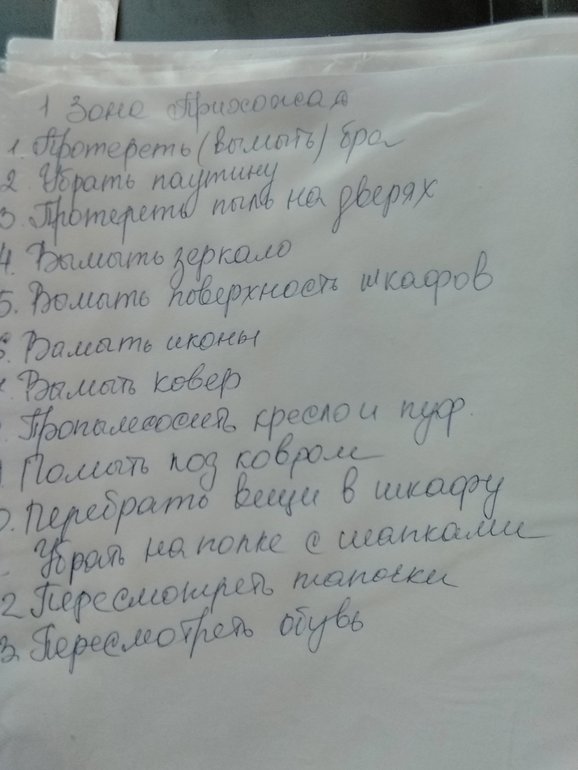 1 Зона Прихожая
1. Протереть (вымыть) бра
2. Убрать паутину
3 Протереть пыль на дверях
4. Вымыть зеркало
5. Вымыть поверхность шкафов
6. Вымыть иконы
Вымыть ковер
Пропылесосить кресло и пуф.
Помыть под ковром
0. Перебрать вещи в шкафу
Убрать на полке с шапками
2 Пересмотреть тапочки
3. Пересмотреть обувь